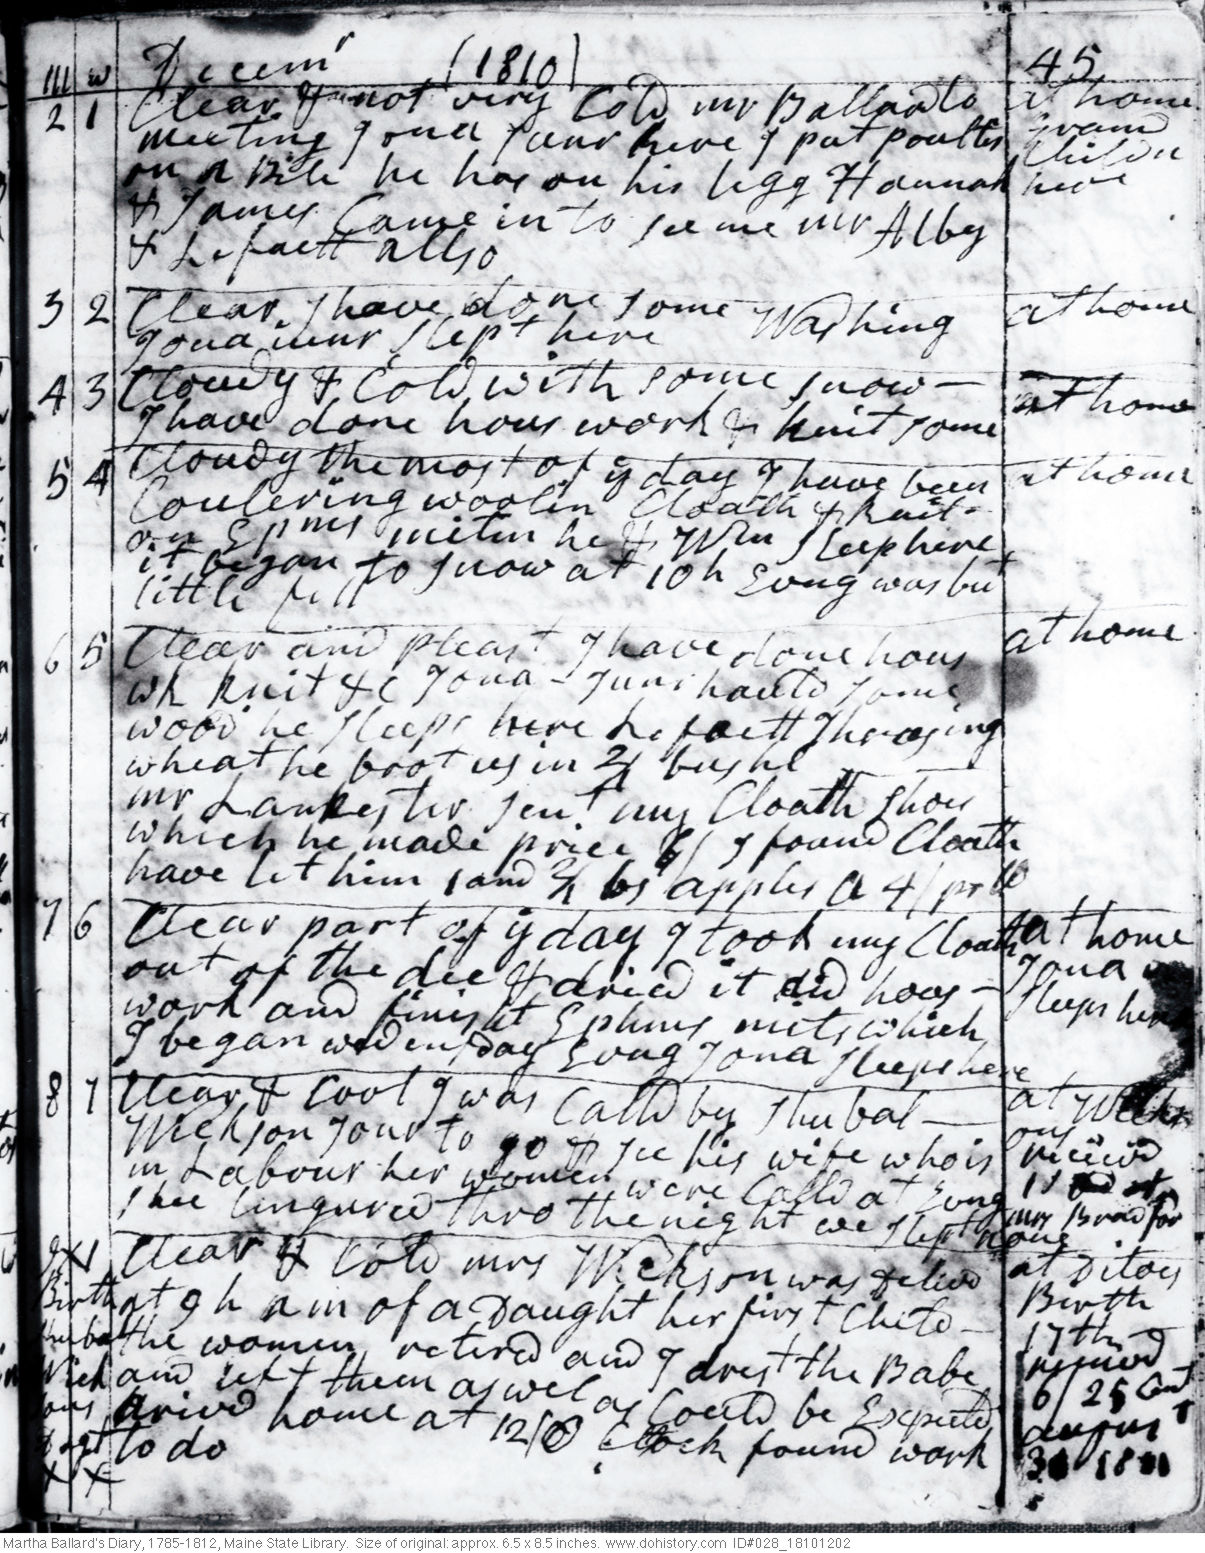 m w Decemr (1810) 45
2 1 Clear & not very Cold mr Ballard to at home
meeting Jona Junr here I put poultis Grand
on a Bile he has on his legg Hannah Childn
& James Came in to see me mr Alby here
& Lafaett allso
3 2 Clear I have done some Washing at home
Jona iunr Slept here
4 3 Cloudy & Cold with some snow – at home
I have done hous work & knit some
5 4 Cloudy the most of ÿ day I have been at home
Coulering woolin Cloath & knit
on Epms mitin he & Wm Sleep here
it began to snow at 10 h Evng was but
little fell
6 5 Clear and pleast I have done hous at home
wk knit &c Jona - Junr hauld some
wood he sleeps here Lafaett Thrasing
wheat he brot us in 2/ bushl
mr Lankester sent my Cloath Shoes
which he made price 6/ I found Cloath
have let him 1 and bs apples a 4/ pr
7 6 Clear part of ÿ day I took my Cloath at home
out of the die & dried it did hous – Jona
work and finisht Ephms mits which Sleeps here
I began wedensday Evng Jona sleeps here
8 7 Clear & Cool I was Calld by Shubal – at Wicks
Wickson Jour to go & see his wife who is ons
in Labour her women were Calld at Evng receivd
Shee lingured thro the night we slept none mrs Bradfor
9 1 Clear & Cold mrs Wickson was delivd at Ditoes
Birth at 9 h a m of a Daught her first Child – Birth
Shubal the women retird and I drest the Babe 17th
Wick and left them as wel as Could be Expectd receivd
sons Arivd home at 12 Clock found work 6/ 25 Cent
Dagt to do august
X X 1811
Martha Ballard's Diary, 1785-1812, Maine State Library. Size of original: approx. 6.5 x 8.5 inches. www.dohistory.com ID#028_18101202